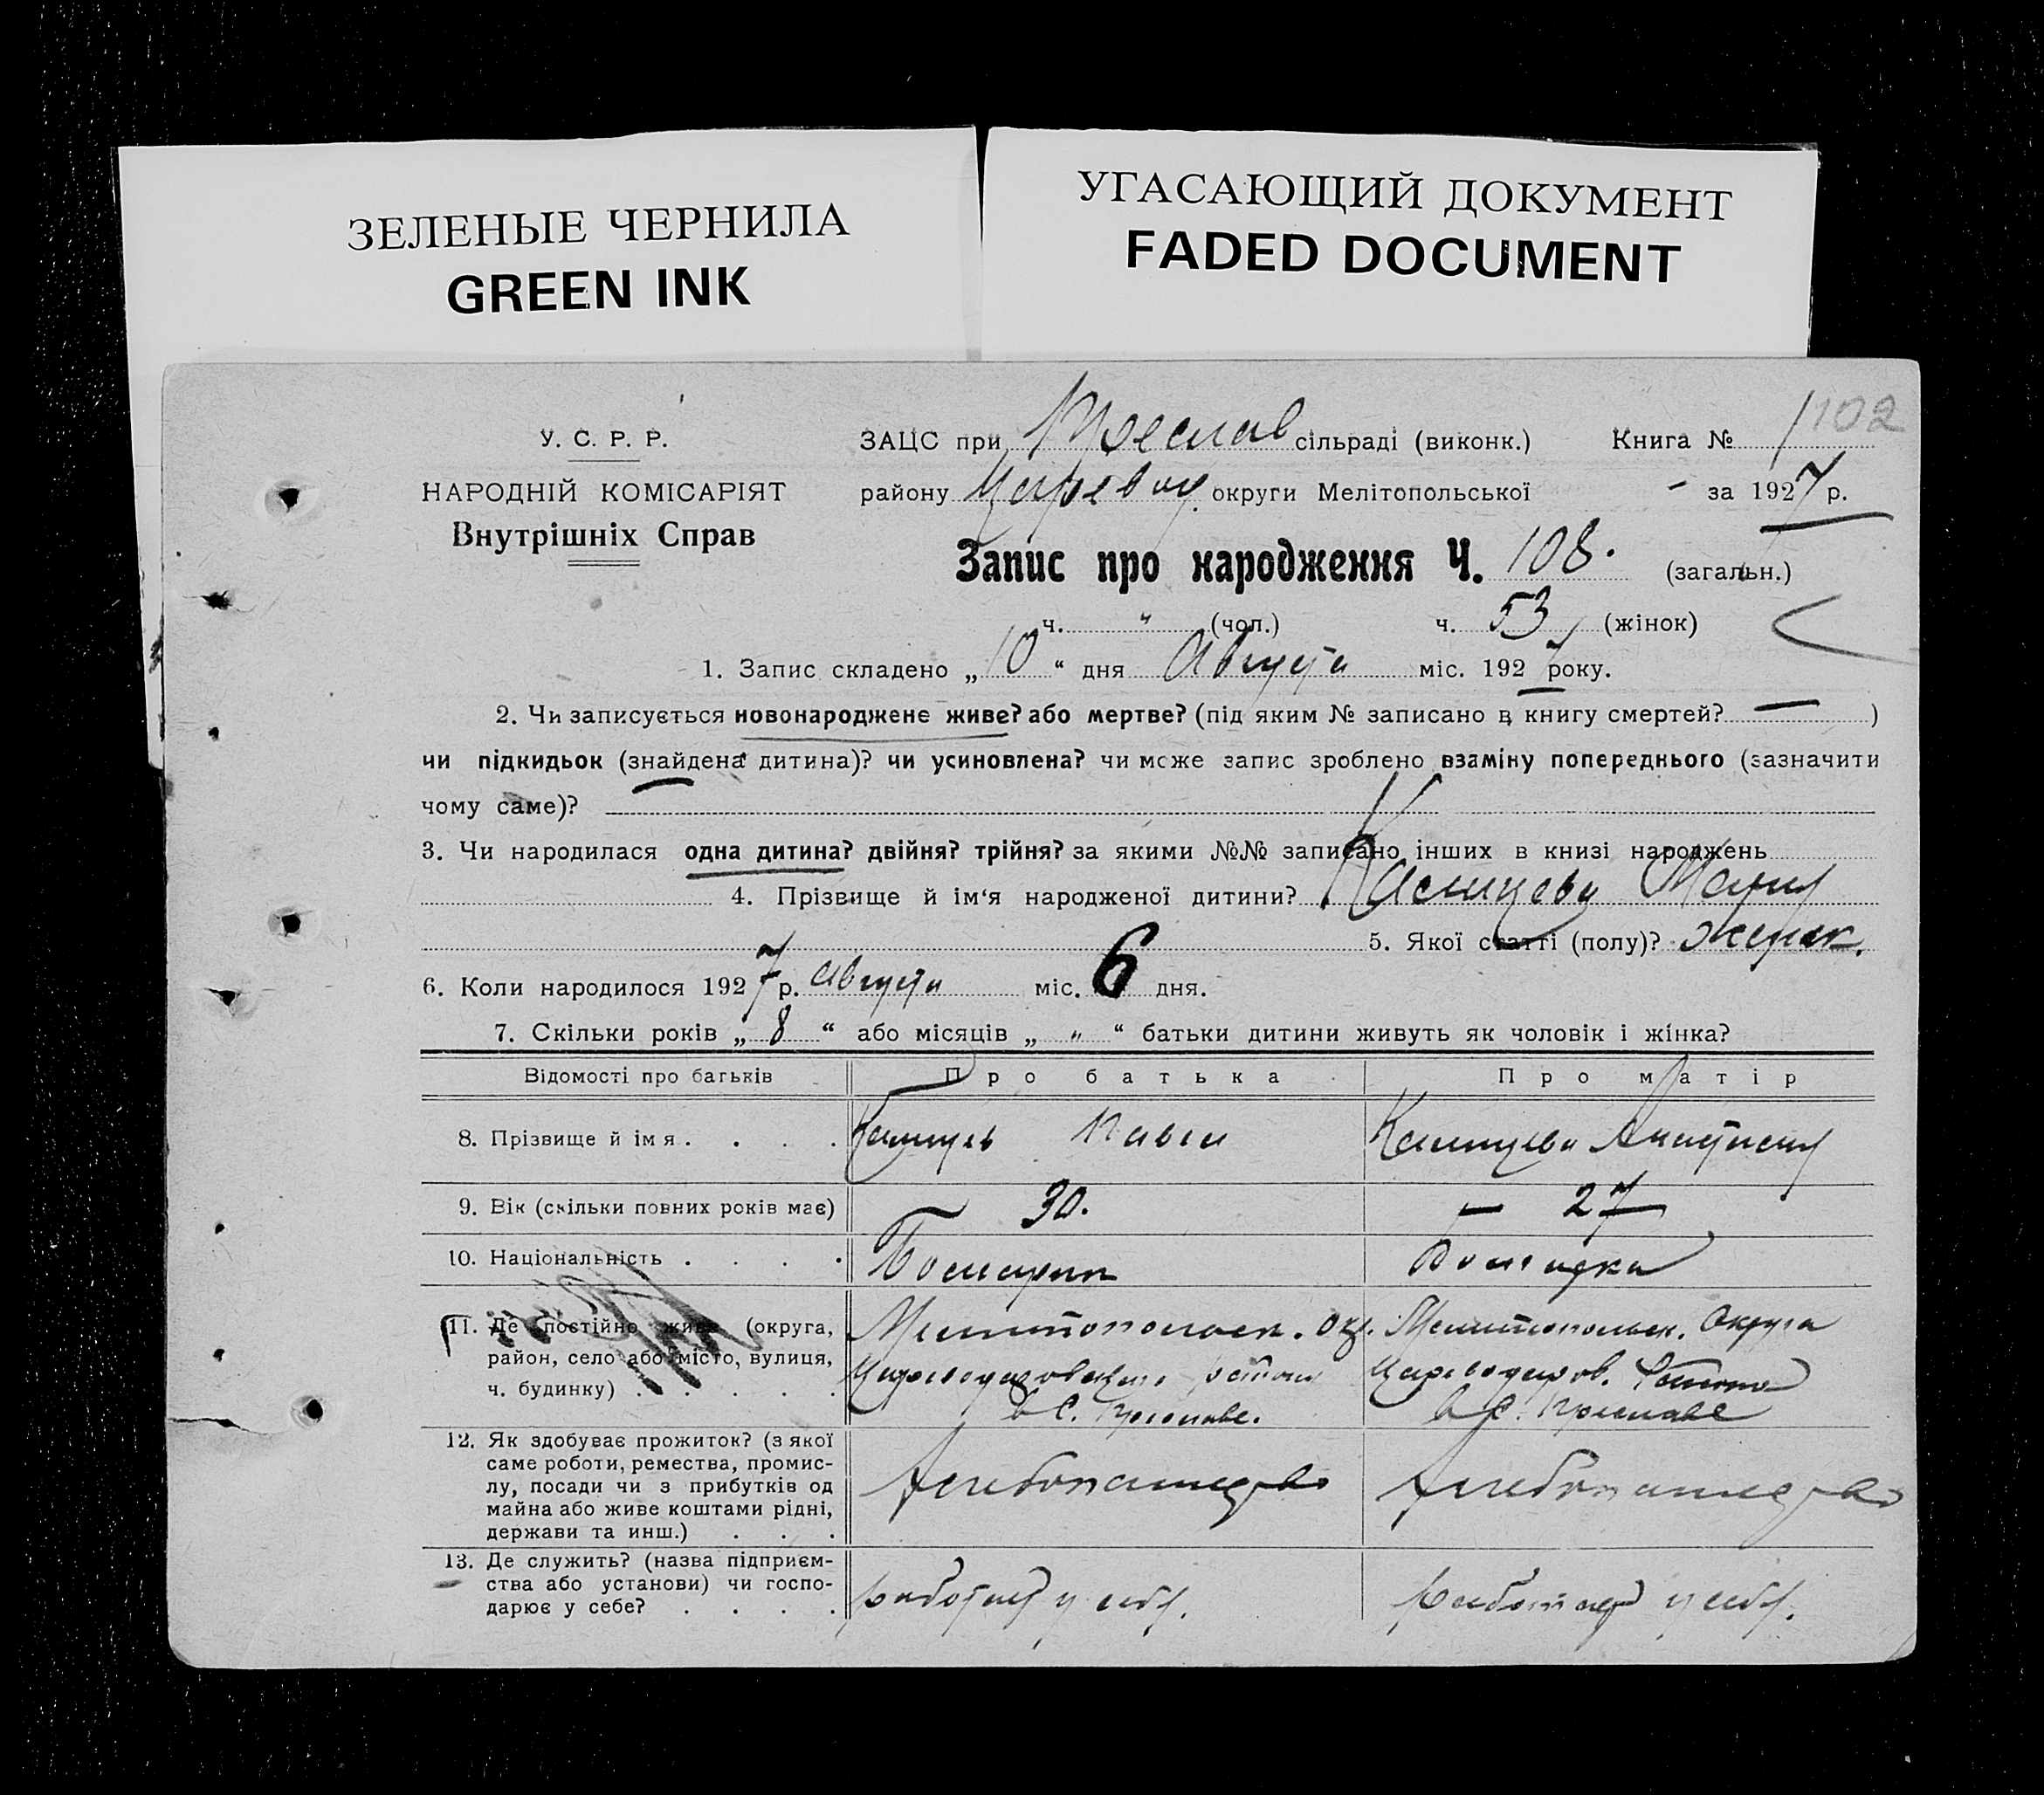 ЗЕЛЕНЫЕ ЧЕРНИЛА
GREEN INK
УГАСАЮЩИЙ ДОКУМЕНТ
FADED DOCUMENT
102
У. С. Р. Р.
НАРОДНІЙ КОМІСАРІЯТ
Внутрішніх Справ
ЗАЦС при Преслав сільраді (виконк.) Книга №
району Царевод. округи Мелітопольської — за 1927 р.
Запис про народження Ч. 108. (загальн.)
ч. " (чол.) ч. 53 (жінок)
1. Запис складено „ 10 “ дня Августа міс. 1927 року.
2. Чи записується новонароджене живе? або мертве? (під яким № записано в книгу смертей? — )
чи підкидьок (знайдена дитина)? чи усиновлена? чи може запис зроблено взаміну попереднього (зазначити
чому саме)?
3. Чи народилася одна дитина? двійня? трійня? за якими №№ записано інших в книзі народжень
4. Прізвище й ім‘я народженої дитини? Мария
5. Якої статті (полу)? женск.
6. Коли народилося 1927 р. Августа міс. 6 дня.
7. Скільки років „ 8 “ або місяців „ " “ батьки дитини живуть як чоловік і жінка?
Відомості про батьків Про батька Про матір
8. Прізвище й імя Павел Анастасия
9. Вік (скільки повних років має) 30. — 27 —
10. Національність Болгарин Болгарка
11. Де постійно живе (округа, район, село або місто, вулиця, ч. будинку)
Мелитопольск. Окр.
Цареводаровского района
в с. Преславе.
Мелитопольск. Округа
Цареводаров. Района
в с. Преславе
12. Як здобуває прожиток? (з якої саме роботи, ремества, промислу, посади чи з прибутків од майна або живе коштами рідні, держави та инш.)
Хлебопашество Хлебопашество
13. Де служить? (назва підприємства або установи) чи господарює у себе?
работает у себя. работает у себя.